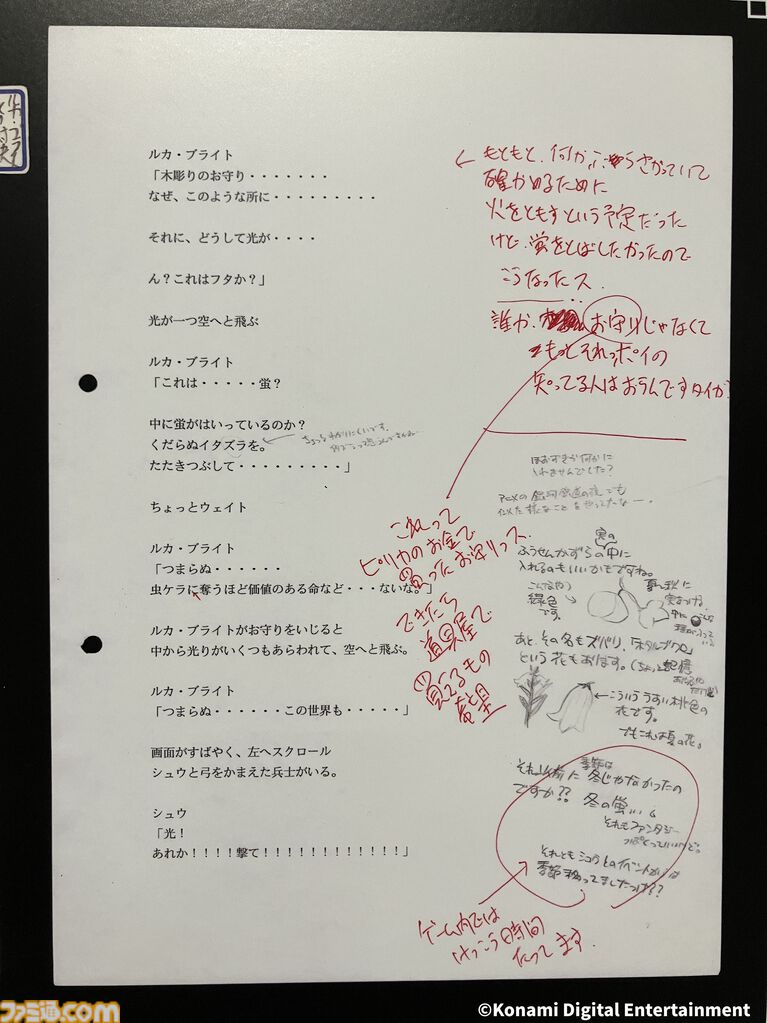 ルカ・ブライト
「木彫りのお守り・・・・・・・
なぜ、このような所に・・・・・・・・・
それに、どうして光が・・・・
ん?これはフタか?」
光が一つ空へと飛ぶ
ルカ・ブライト
「これは・・・・・蛍?
中に蛍がはいっているのか?
くだらぬイタズラを。
たたきつぶして・・・・・・・・・」
ちょっとウェイト
ルカ・ブライト
「つまらぬ・・・・・・
虫ケラに奪うほど価値のある命など・・・ないな。」
ルカ・ブライトがお守りをいじると
中から光りがいくつもあらわれて、空へと飛ぶ。
ルカ・ブライト
「つまらぬ・・・・・・この世界も・・・・・」
画面がすばやく、左へスクロール
シュウと弓をかまえた兵士がいる。
シュウ
「光!
あれか!!!!撃て!!!!!!!!!!!!!」
←もともと、何かぶらさがっていて
確かめるために
火をともすという予定だった
けど、蛍をとばしたかったので
こうなったス
誰か、お守りじゃなくて
もっとそれっポイの
知ってる人はおらんですタイか?
これって
ピリカのお金で
買ったお守りっス
できたら
道具屋で
買えるもの
希望
ほおずきか何かに
いれませんでした?
ふうせんかずらの実の中に
入れるのもいいかもですね。
こんなやつ
緑色
です。
あと、その名もズバリ、「ホタルブクロ」
という花もあります。
←こういううすい桃色の
花です。
でもこれは夏の花。
それ以前に季節は冬じゃなかったの
ですか?? 冬の蛍…。
それもファンタジー
っぽくっていいけど。
それともシュウとのイベントからは
季節移ってましたっけ??
ゲーム内では
けっこう時間
たってます。
ファミ通.com
©Konami Digital Entertainment